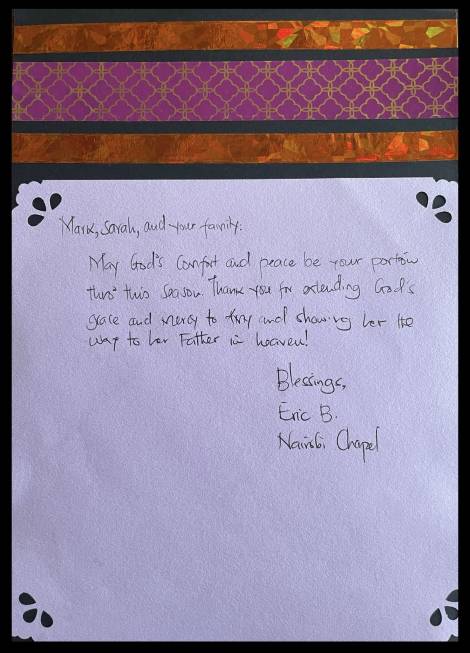 Mark, Sarah, and your family:
May God's Comfort and peace be your portion
thro' this season. Thank you for extending God's
grace and mercy to and showing her the
way to her Father in heaven!
Blessings,
Eric B.
Nairobi Chapel